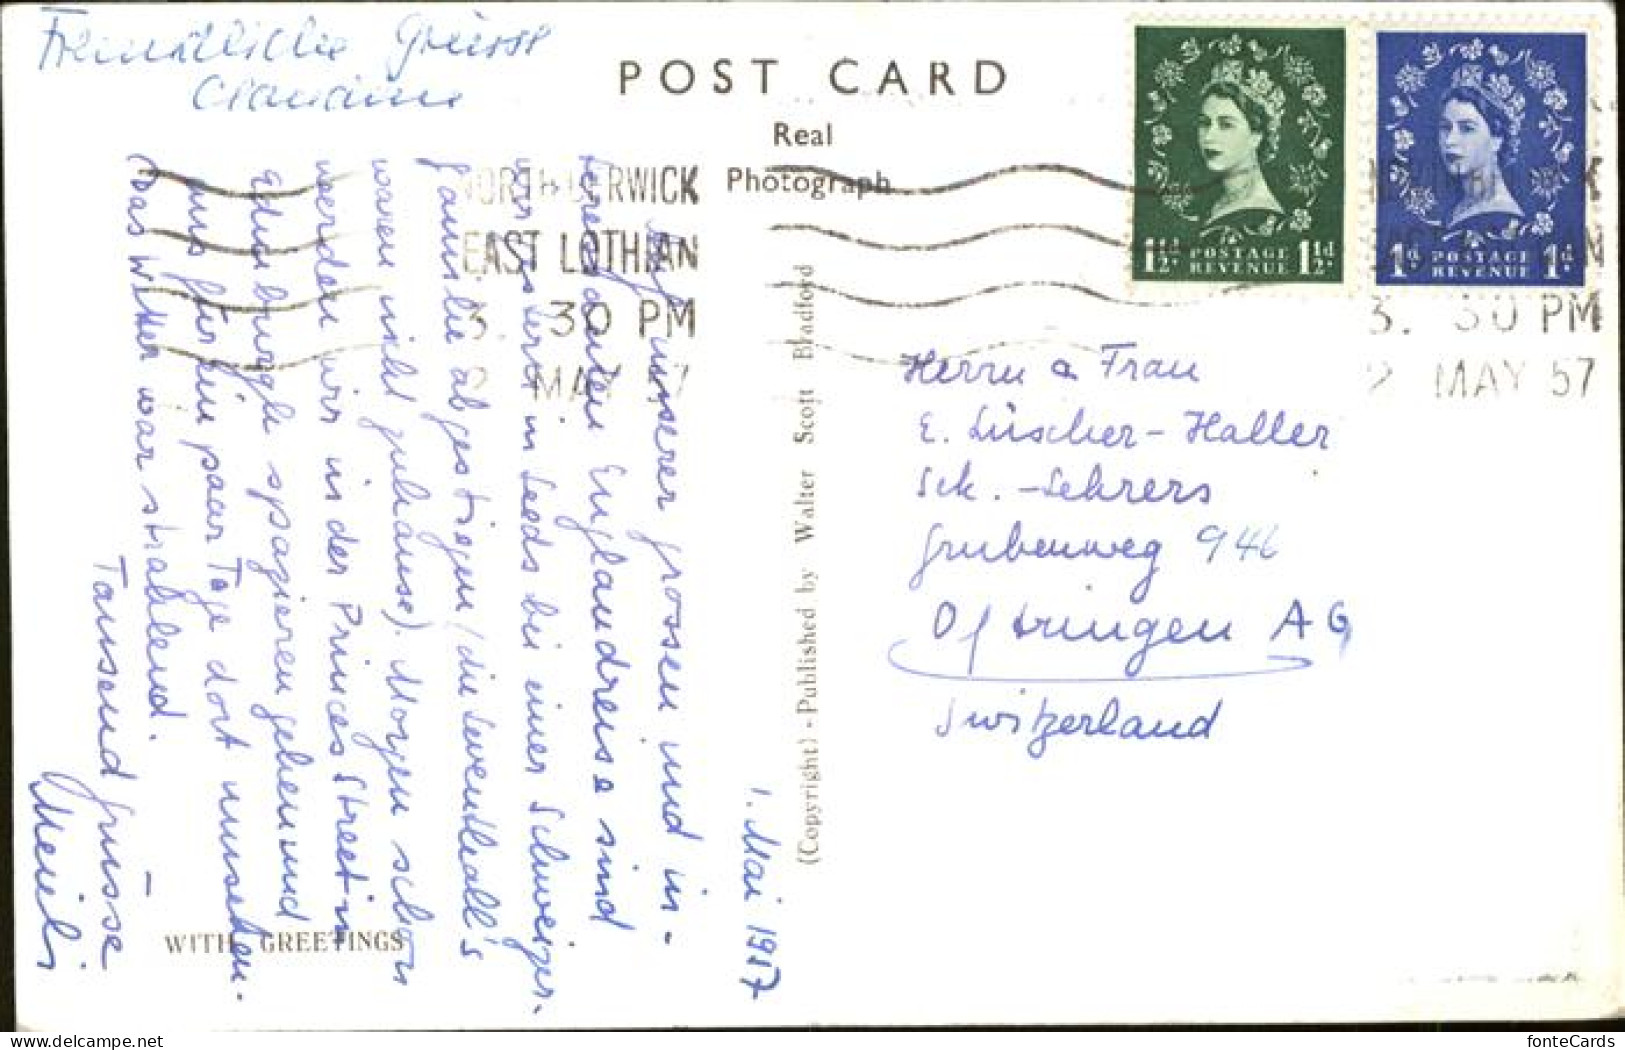 Freundliche Grüsse
POST CARD
Real
Photograph
1½d. POSTAGE REVENUE 1½d.
1d. POSTAGE REVENUE 1d.
NORTH BERWICK
EAST LOTHIAN
3. 30 PM
2 MAY 57
3. 30 PM
2 MAY 57
1. Mai 1957
Auf unserer grossen und in-
teressanten Englandreise sind
wir zuerst in Leeds bei einer Schweizer-
familie abgestiegen (die Leventhall's
waren nicht zuhause). Morgen schon
werden wir in der Princes Street in
Edinburgh spazieren gehen und
uns für ein paar Tage dort umsehen.
Das Wetter war strahlend.
Tausend Grüsse
(Copyright) - Published by Walter Scott Bradford
Herrn & Frau
E. Lüscher-Haller
Sek. - Lehrers
Grubenweg
Oftringen AG
Switzerland
WITH GREETINGS
fonteCards